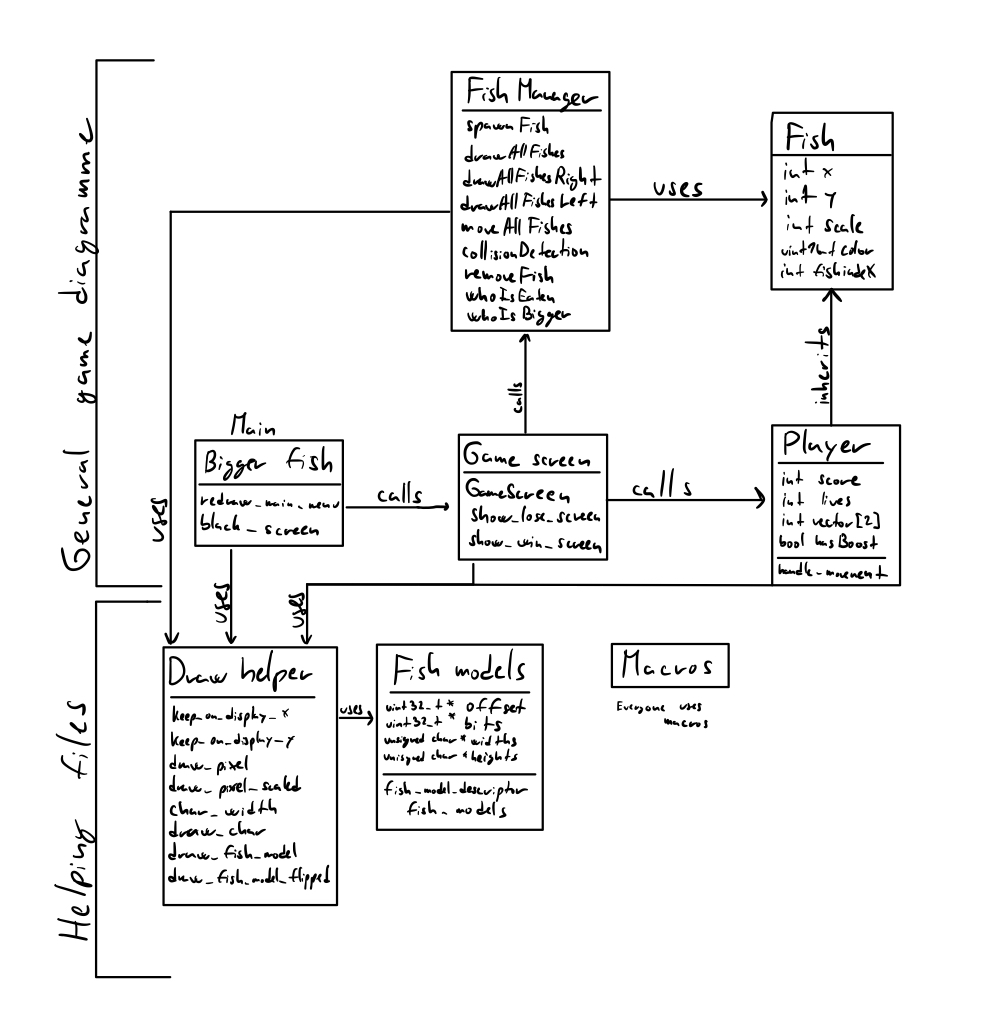 General game diagramme
Fish Manager
spawn Fish
drawAllFishes
drawAllFishesRight
drawAllFishesLeft
moveAllFishes
collisionDetection
removeFish
whoIsEaten
whoIsBigger
uses
Fish
int x
int y
int scale
int fishindeX
calls
inherits
uses
Main
Bigger fish
redraw_main_menu
black_screen
calls
Game screen
GameScreen
show_lose_screen
show_win_screen
calls
Player
int score
int lives
int vector[2]
bool hasBoost
handle_movement
uses
uses
Helping files
Draw helper
keep_on_display_x
keep_on_display_y
draw_pixel
draw_pixel_scaled
char_width
draw_char
draw_fish_model
draw_fish_model_flipped
uses
Fish models
uint32_t * offset
uint32_t * bits
unsigned char * widths
unisgned char * heights
fish_model_descriptor
fish_models
Macros
Everyone uses
macros